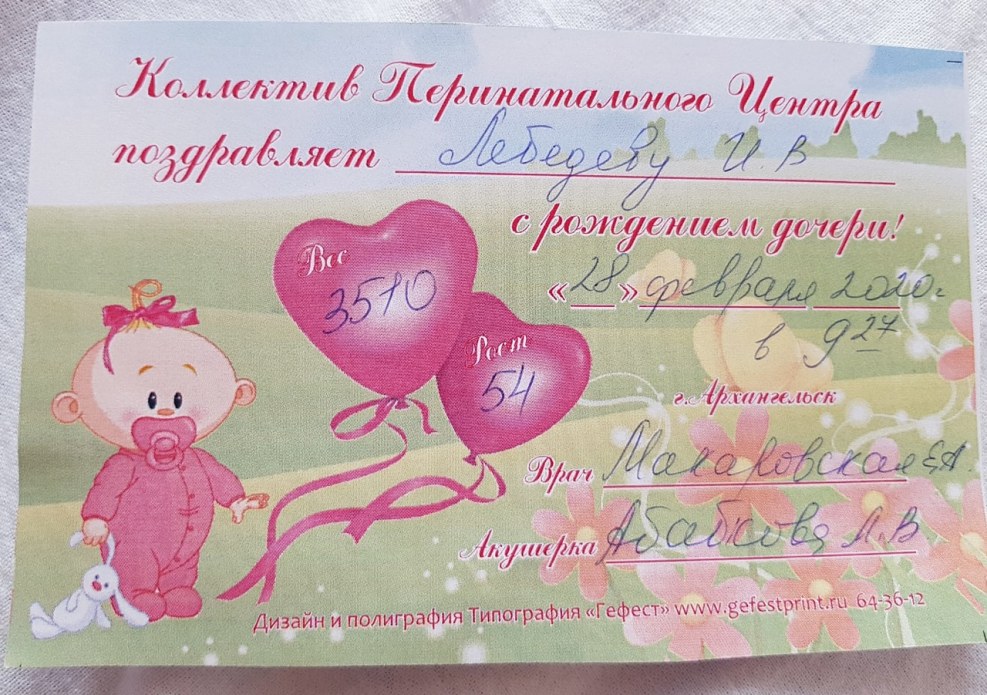 Коллектив Перинатального Центра
поздравляет Лебедеву И.В
с рождением дочери!
Вес
3510
«28» февраля 2020г
в 9 27
Рост
54
г.Архангельск
Врач Макаровская Е.А.
Акушерка Абабкова Л.В
Дизайн и полиграфия Типография «Гефест» www.gefestprint.ru 64-36-12